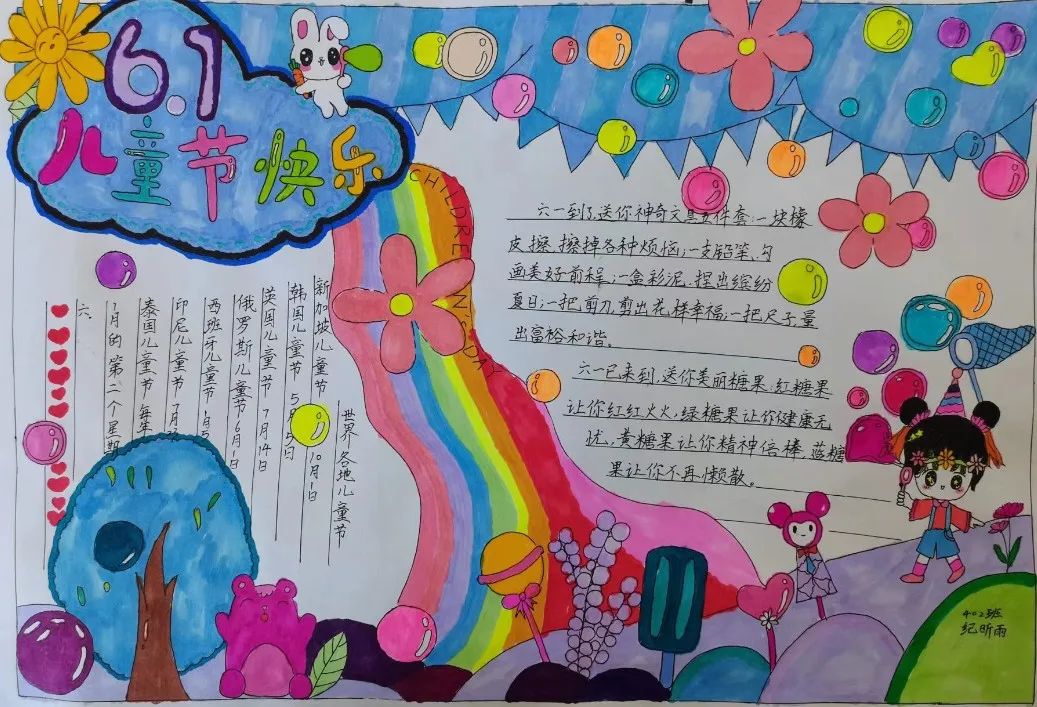 6.1
儿童节快乐
CHILDREN
世界各地儿童节
新加坡儿童节 10月1日
韩国儿童节 5月5日
英国儿童节 7月14日
俄罗斯儿童节6月1日
西班牙儿童节 1月5
印尼儿童节 7月2
泰国儿童节 每年
1月的第二个星期
六.
六一到了,送你神奇文具五件套:一块橡
皮擦,擦掉各种烦恼;一支铅笔,勾
画美好前程;一盒彩泥,捏出缤纷
夏日;一把剪刀剪出花样幸福;一把尺子,量
出富裕和谐。
六一已来到,送你美丽糖果:红糖果
让你红红火火,绿糖果让你健康无
忧,黄糖果让你精神倍棒,蓝糖
果让你不再懒散。
402班
纪昕雨